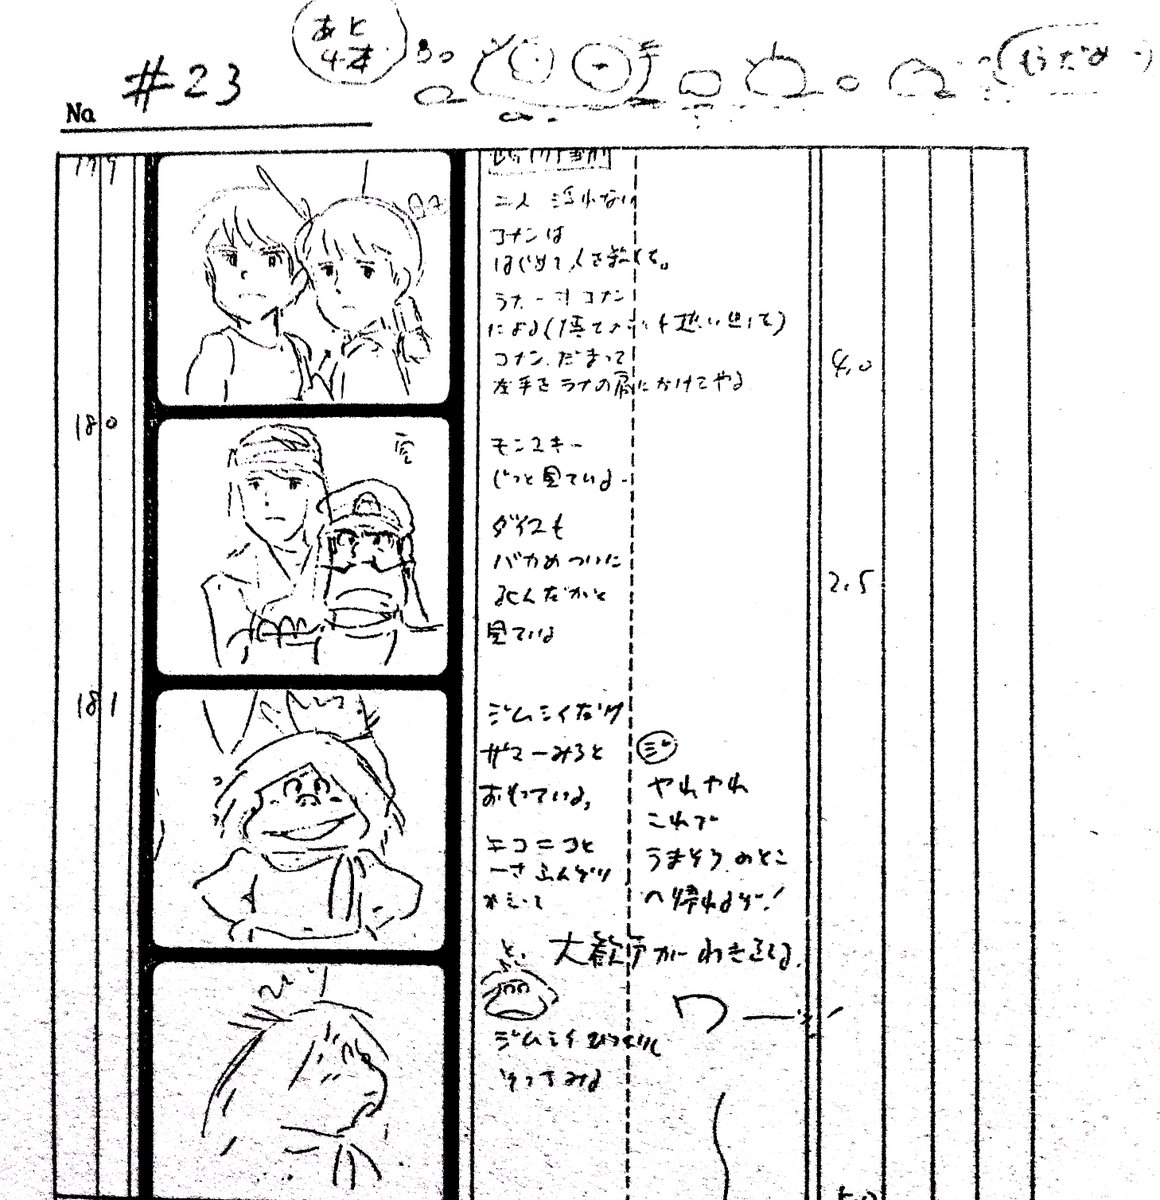 あと
4本
#23
No
もうだめ
179
二人 浮かない
コナンは
はじめて人を殺した。
ラナーオ コナン
コナン、だまって
左手をラナの肩にかけてやる
4.0
180
モンスキー
じっと見ている
ダイスも
バカめついに
死んだかと
見ている
2.5
181
ジムシイだけ
ザマーみろと
おもっている。
ニコニコと
ジ
やれやれ
これで
うまそうのとこ
へ帰れるぞ!
と、
大歓声がわきおこる。
ワーッ
ジムシイびっくりし
そっちみる
5.0